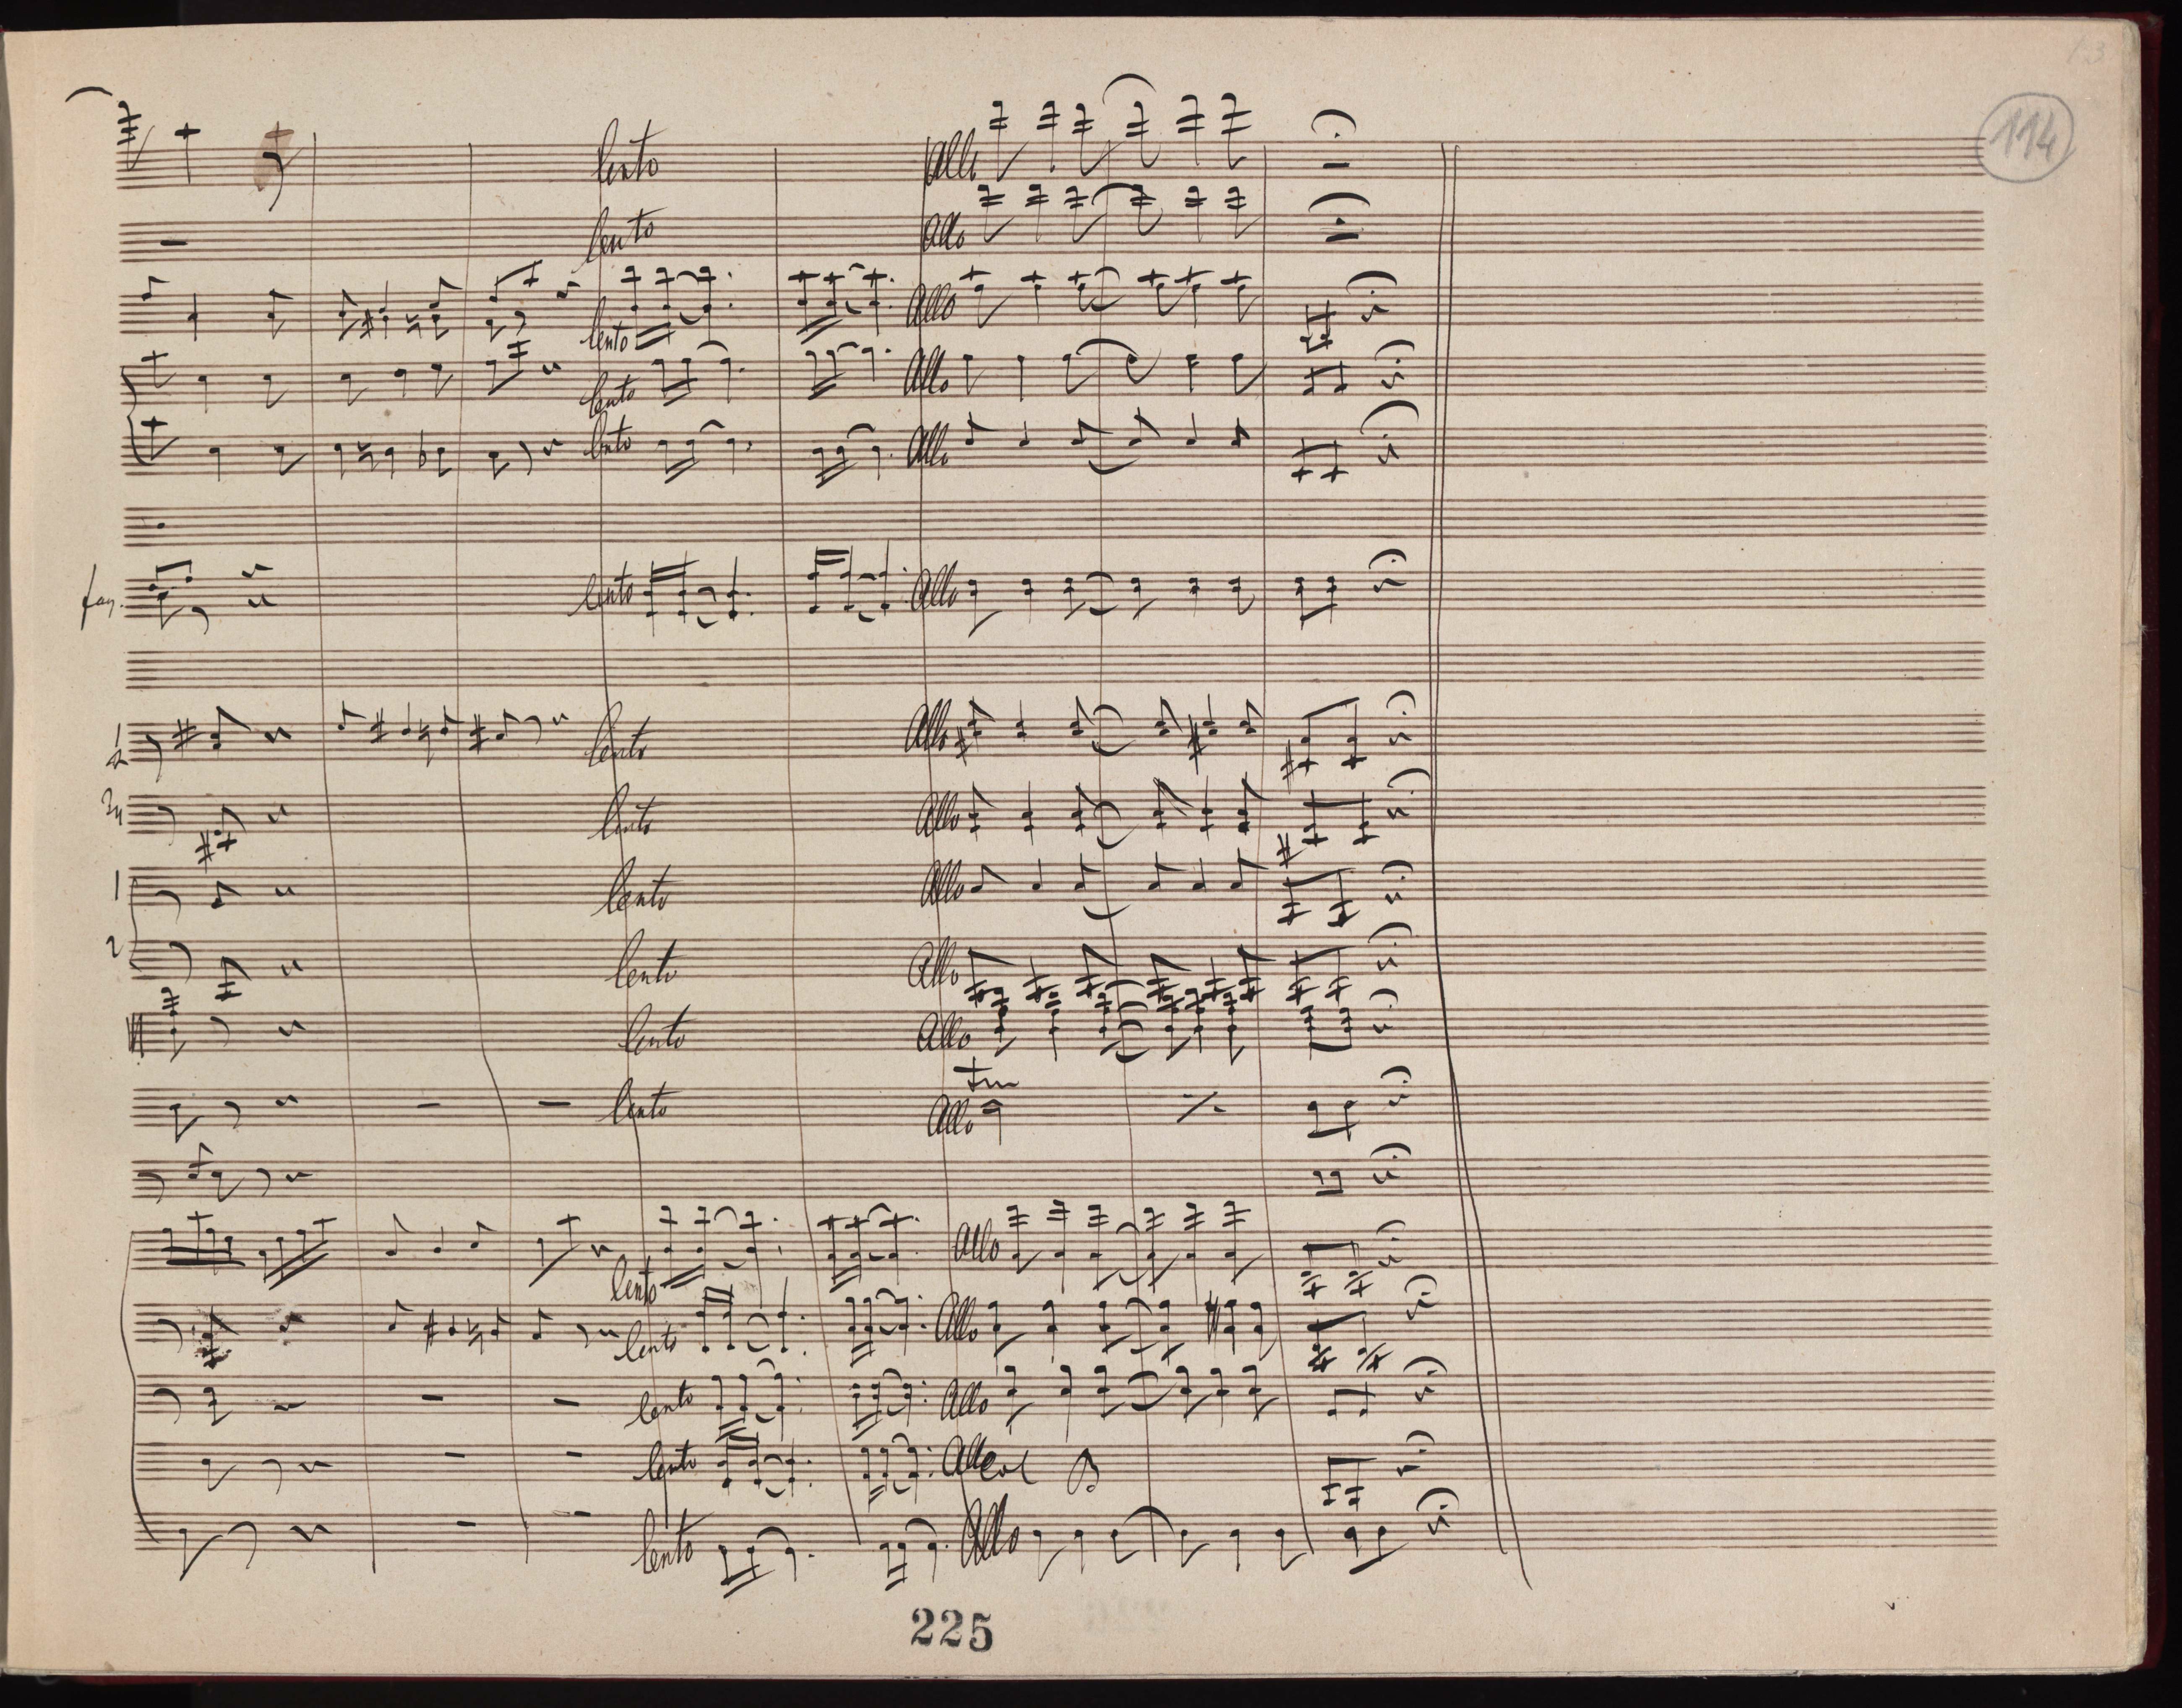 114
lento Allo
lento Allo
lento Allo
lento Allo
lento Allo
fag. lento Allo
1 2 lento Allo
3 4 lento Allo
1 lento Allo
2 lento Allo
lento Allo
tr
lento Allo
lento Allo
lento Allo
lento Allo
lento Allo col B
lento Allo
225